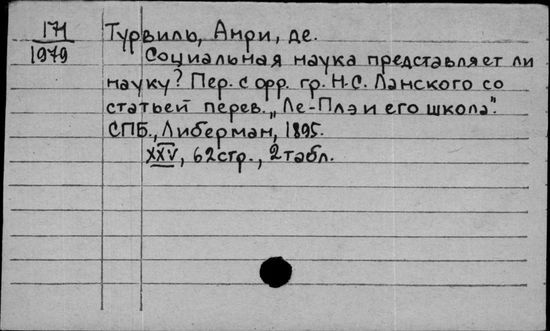 171 Турвиль, Анри, де.
1979 Социальная наука представляет ли
науку? Пер. с фр. гр. Н.С. Ланского со
статьей перев. „Ле-Плэ и его школа".
СПБ., Либерман, 1895.
XXV, 62стр., 2табл.